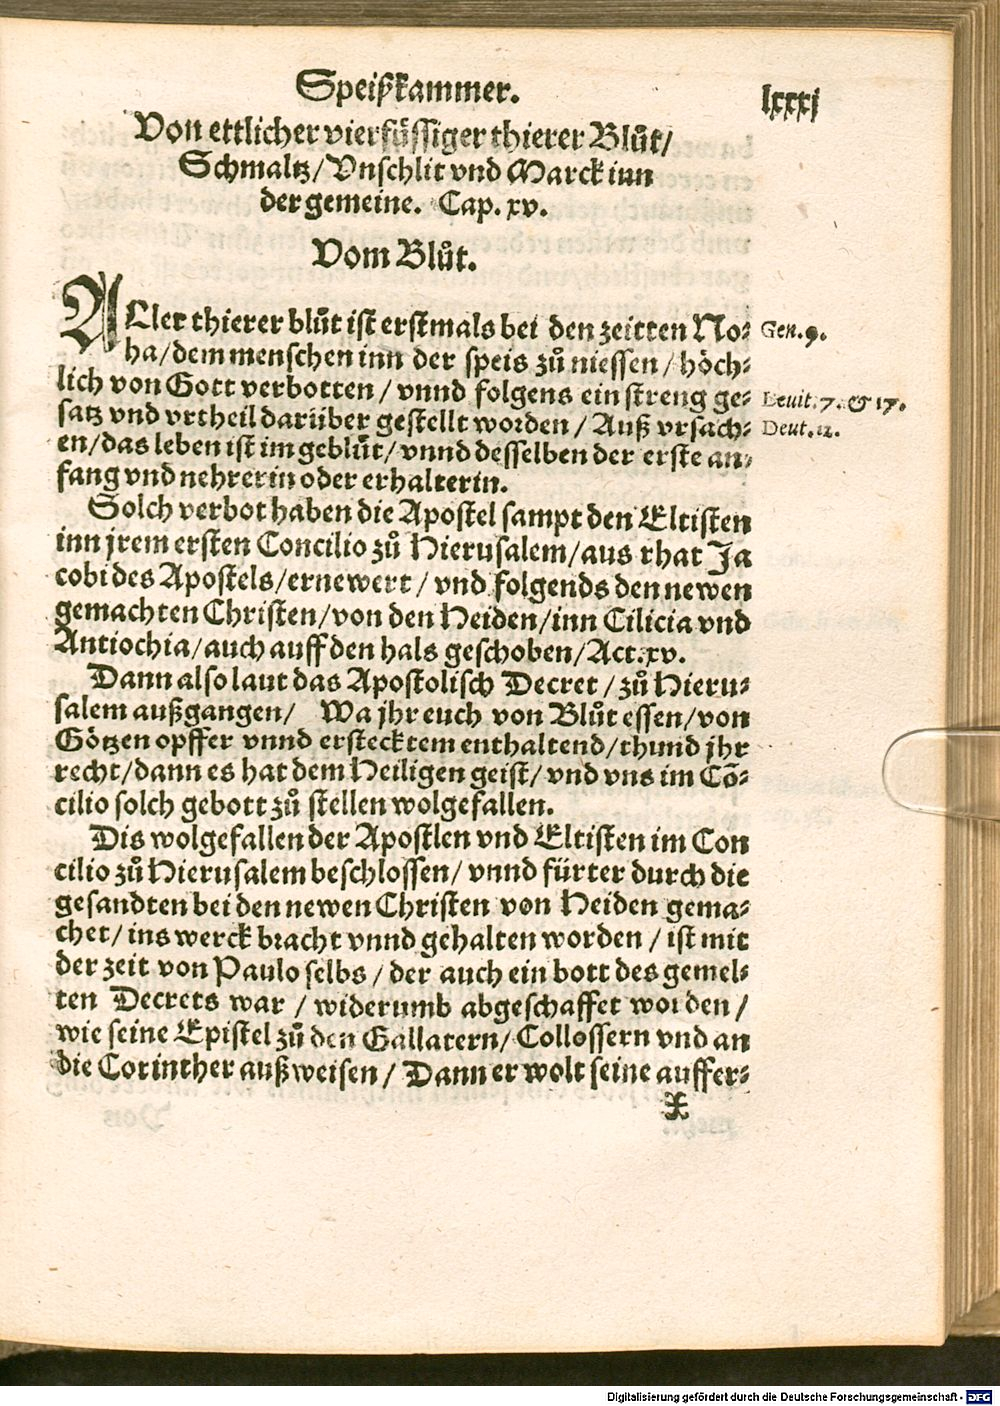 Speißkammer.
lxxxj
Von ettlicher vierfüssiger thierer Blůt/
Schmaltz/ Vnschlit vnd Marck inn
der gemeine. Cap. xv.
Vom Blůt.
ALler thierer blůt ist erstmals bei den zeitten No-
Gen. 9.
ha/ dem menschen inn der speis zů niessen/ höch-
lich von Gott verbotten/ vnnd folgens ein streng ge-
Leuit. 7. & 17.
satz vnd vrtheil darüber gestellt worden/ Auß vrsach-
Deut. 12.
en/ das leben ist im geblůt/ vnnd desselben der erste an-
fang vnd nehrerin oder erhalterin.
Solch verbot haben die Apostel sampt den Eltisten
inn jrem ersten Concilio zů Hierusalem/ aus rhat Ja
cobi des Apostels/ ernewert/ vnd folgends den newen
gemachten Christen/ von den Heiden/ inn Cilicia vnd
Antiochia/ auch auff den hals geschoben/ Act. xv.
Dann also laut das Apostolisch Decret/ zů Hieru-
salem außgangen/ Wa jhr euch von Blůt essen/ von
Götzen opffer vnnd erstecktem enthaltend/ thund jhr
recht/ dann es hat dem Heiligen geist/ vnd vns im Cõ-
cilio solch gebott zů stellen wolgefallen.
Dis wolgefallen der Apostlen vnd Eltisten im Con
cilio zů Hierusalem beschlossen/ vnnd fürter durch die
gesandten bei den newen Christen von Heiden gema-
chet/ ins werck bracht vnnd gehalten worden/ ist mit
der zeit von Paulo selbs/ der auch ein bott des gemel-
ten Decrets war/ widerumb abgeschaffet worden/
wie seine Epistel zů den Gallatern/ Collossern vnd an
die Corinther außweisen/ Dann er wolt seine auffer-
Digitalisierung gefördert durch die Deutsche Forschungsgemeinschaft - DFG